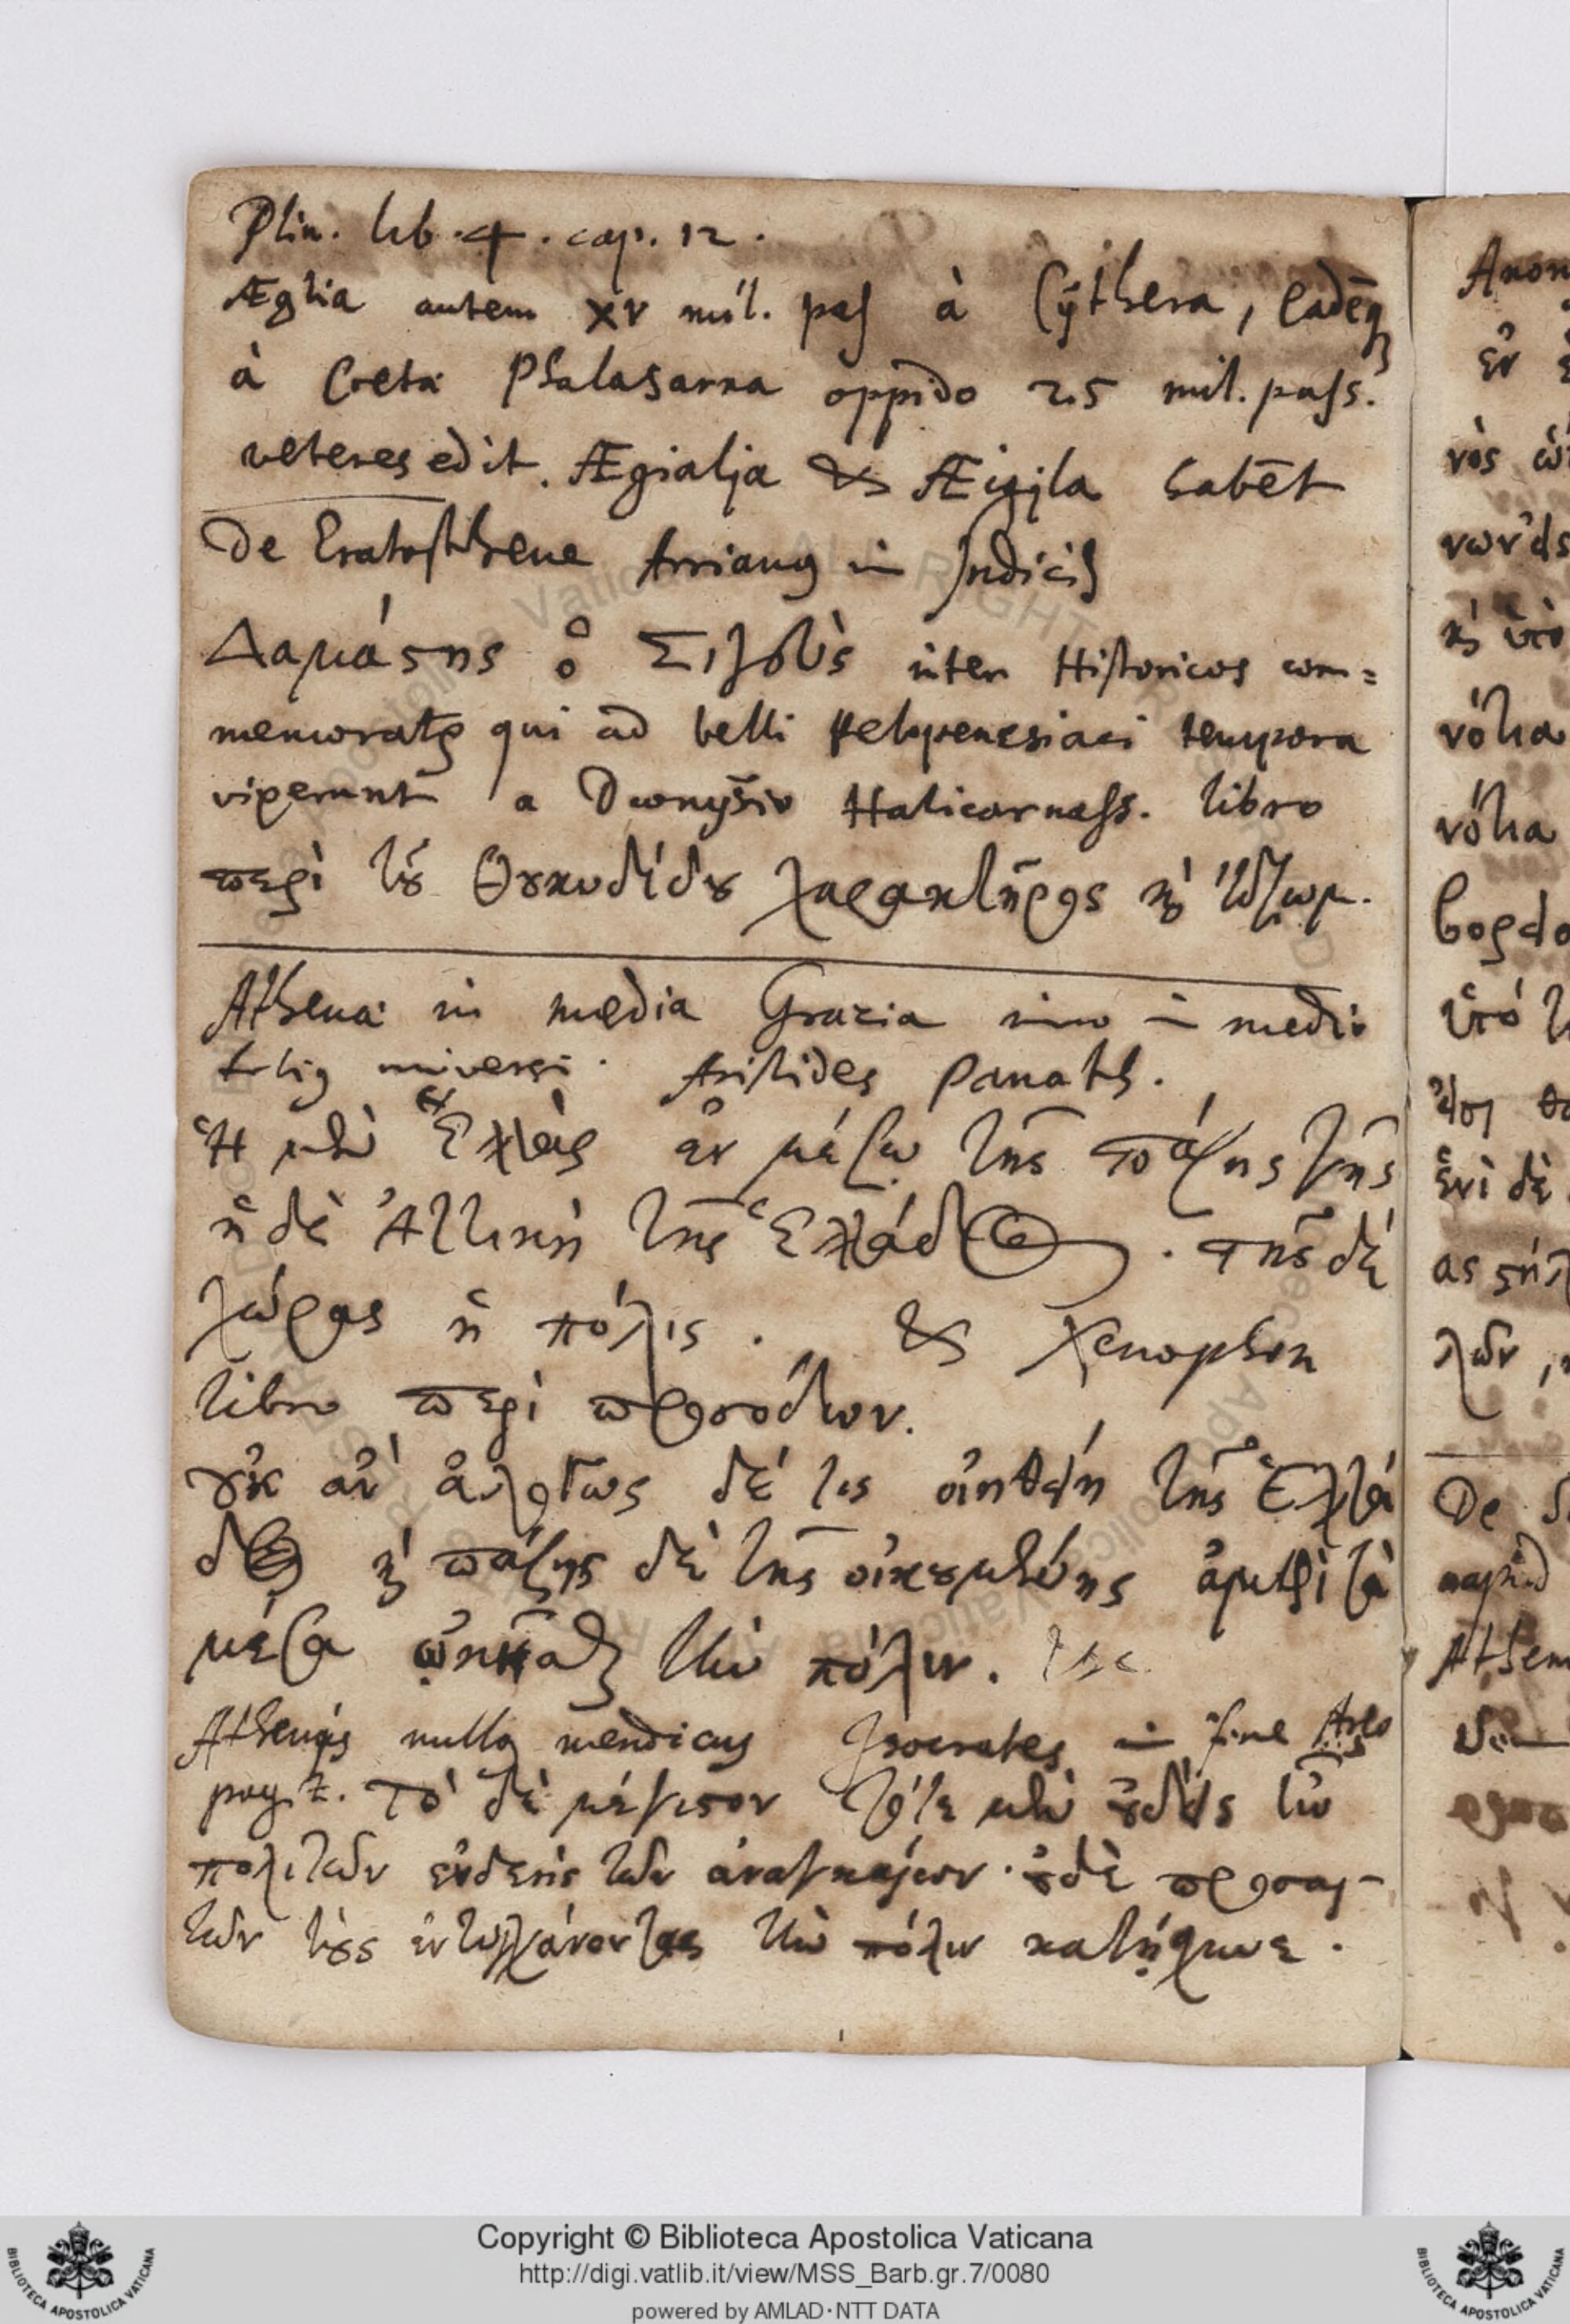 Plin. lib. 4. cap. 12.
Æglia autem XV mil. pas à Cythera, eadēq
à Creta Phalasarna oppido 25 mil. pass.
veteres edit. Ægialia & Æigila habēt
De Eratosthene Arrianus in Indicis
Δαμάστης ὁ Σιγειεὺς inter Historicos com=
memoratus qui ad belli Pelopenesiaci tempora
vixerunt a Dionysio Halicarnass. libro
περὶ τοῦ Θουκυδίδου χαρακτῆρος καὶ ἰδιωμ.
Athenæ in media Græcia imo in medio
totius universi. Aristides Panath.
Ἡ μὲν Ἑλλὰς ἐν μέσῳ τῆς πάσης γῆς
ἡ δὲ Ἀττικὴ τῆς Ἑλλάδος. τῆς δὲ
χώρας ἡ πόλις. & Xenophon
libro περὶ προσόδων.
οὐκ ἂν ἀλόγως δέ τις οἰηθείη τῆς Ἑλλά
δος καὶ πάσης δὲ τῆς οἰκουμένης ἀμφὶ τὰ
μέσα ᾠκῆσθαι τὴν πόλιν.
Athenis nullus mendicus Isocrates in fine Areo
pagit. Τὸ δὲ μέγιστον τότε μὲν οὐδεὶς ἦν
πολιτῶν ἐνδεὴς τῶν ἀναγκαίων. οὐδὲ προσαι-
τῶν τοὺς ἐντυγχάνοντας τὴν πόλιν κατῄσχυνε.
Anon
ἐν
νὸς
νότια
νότια
ὑπό
ἐνὶ δὲ
De
Athen
Copyright © Biblioteca Apostolica Vaticana
http://digi.vatlib.it/view/MSS_Barb.gr.7/0080
powered by AMLAD·NTT DATA
BIBLIOTECA APOSTOLICA VATICANA
BIBLIOTECA APOSTOLICA VATICANA